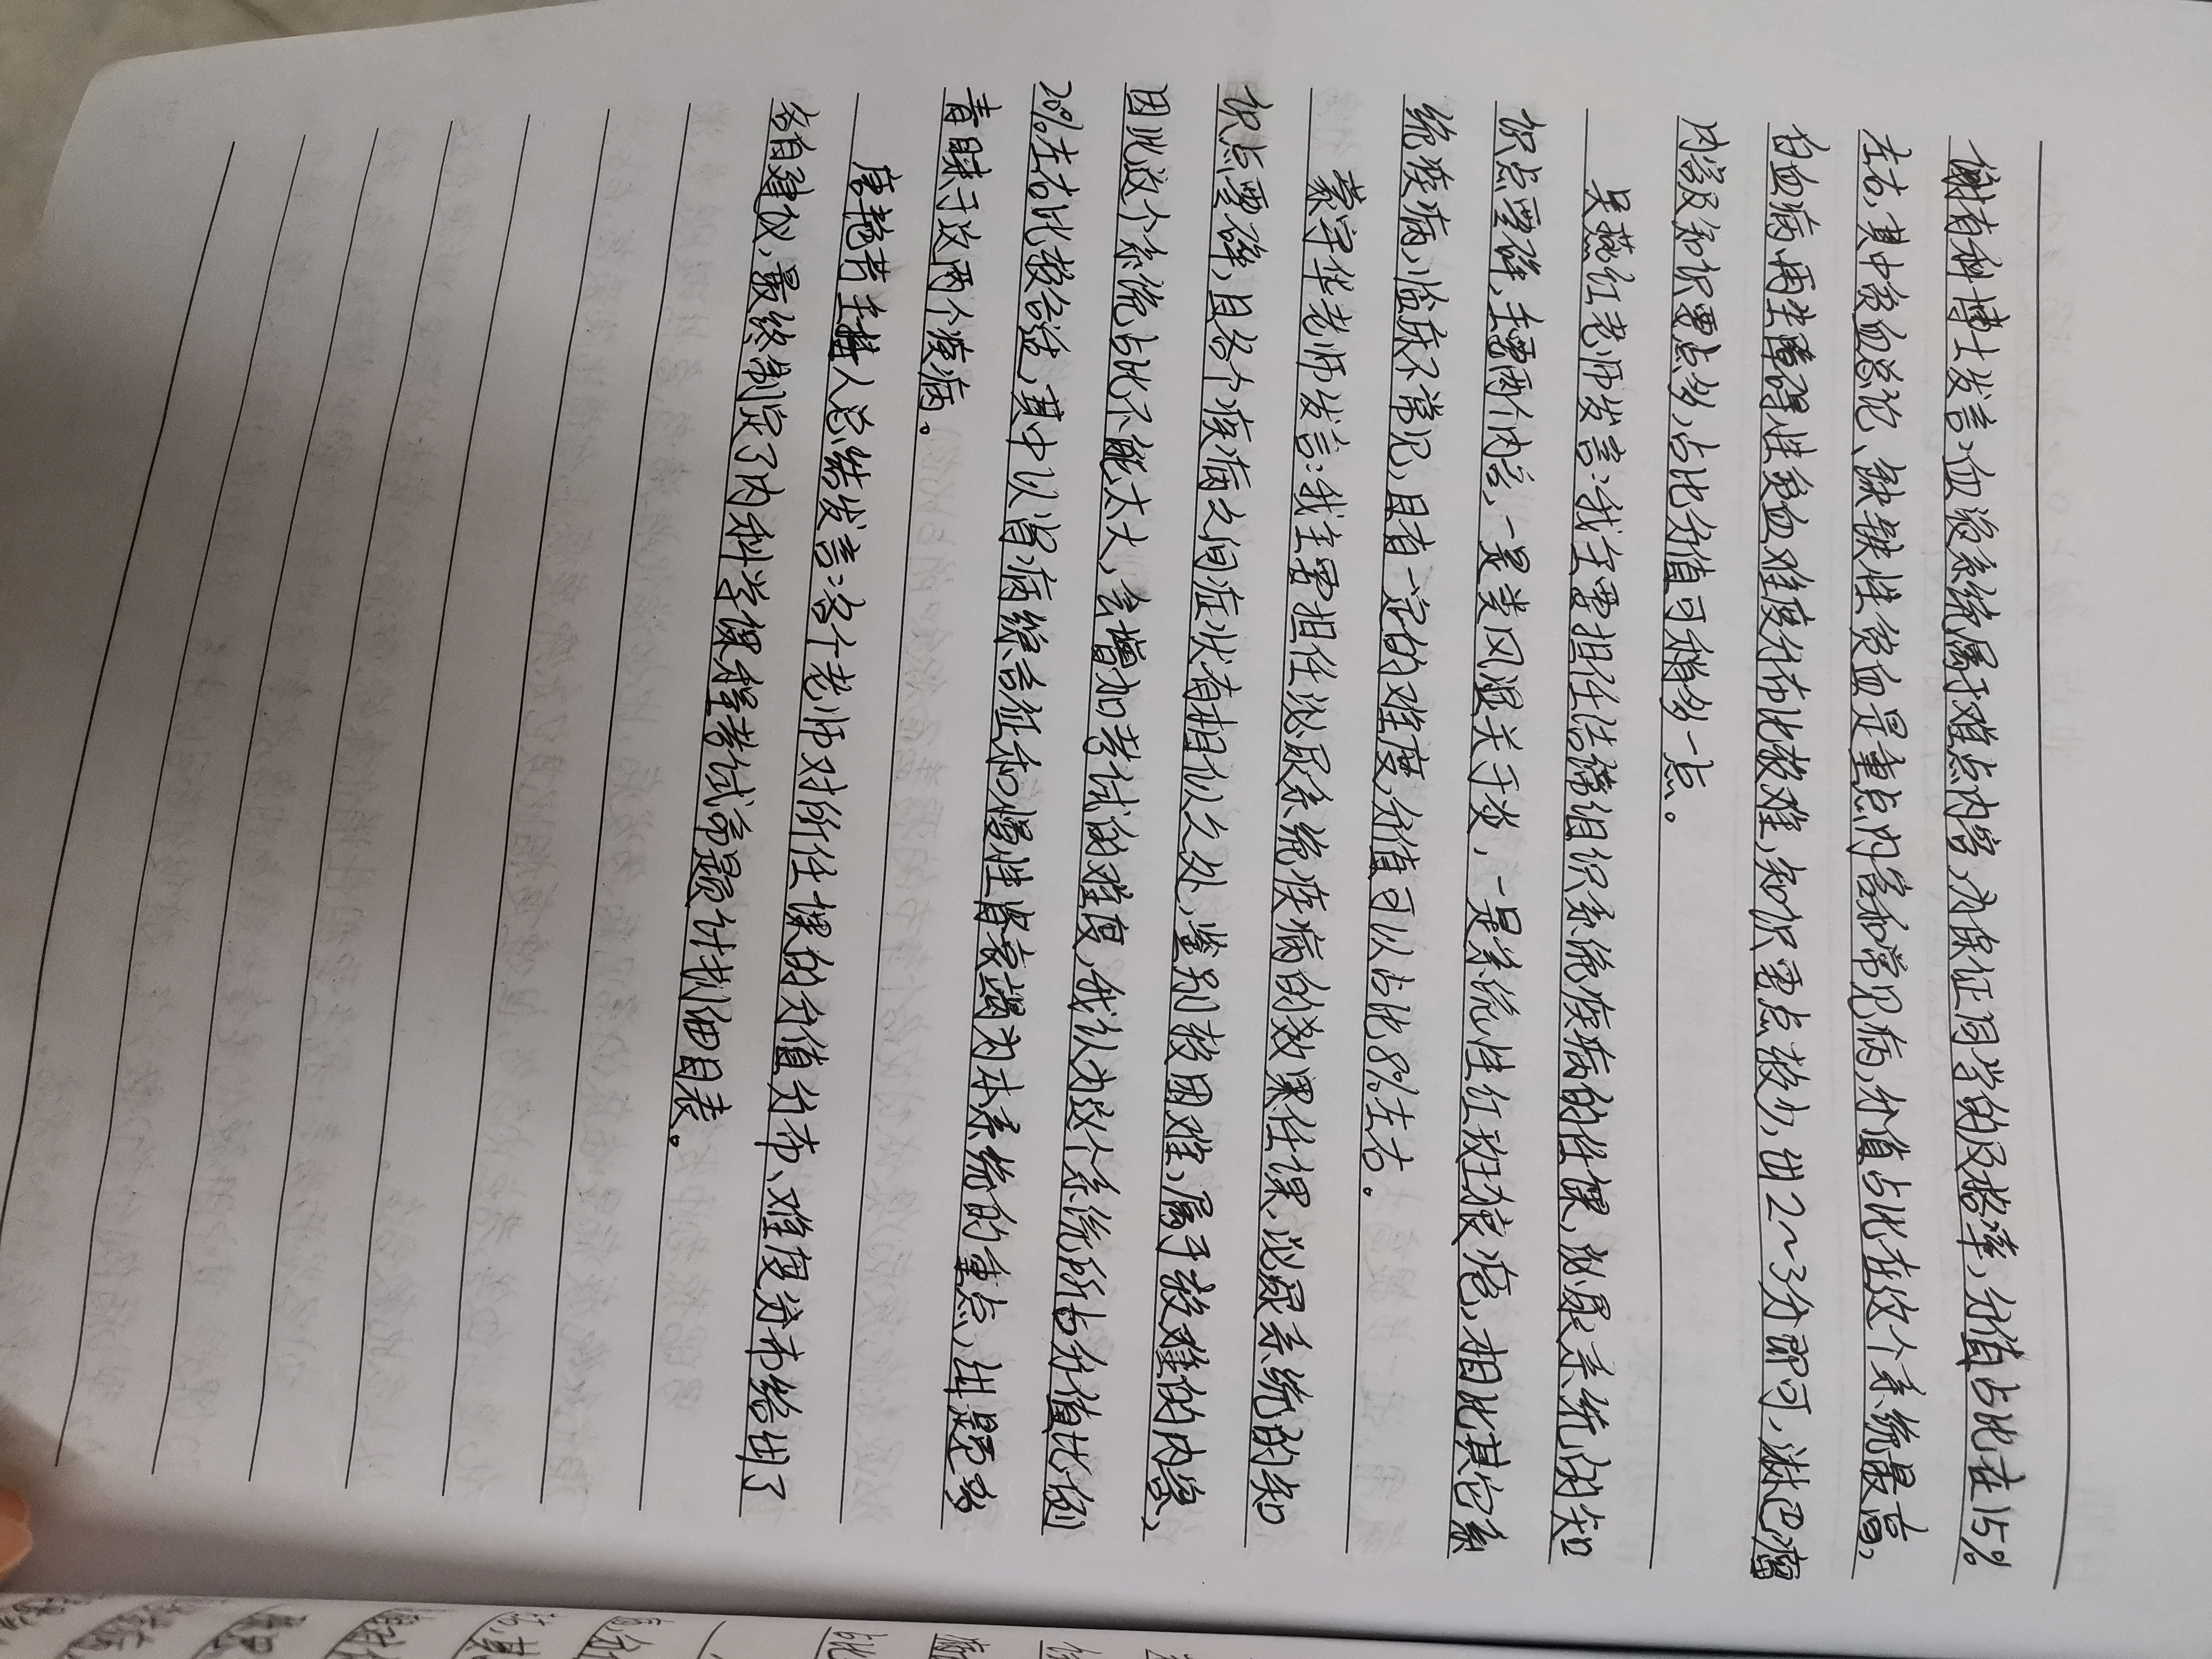 谢有科博士发言:血液系统属于难点内容,为保证同学的及格率,分值占比在15%
左右,其中贫血总论、缺铁性贫血是重点内容和常见病,分值占比在这个系统最高,
白血病再生障碍性贫血难度分布比较难,知识要点较少,出2~3分即可,淋巴瘤
内容及知识要点多,占比分值可稍多一点。
吴燕红老师发言:我主要担任结缔组织系统疾病的任课,泌尿系统的知
识点零碎,主要两个内容,一是类风湿关节炎,一是系统性红斑狼疮,相比其它系
统疾病,临床不常见,且有一定的难度,分值可以占比8%左右。
蒙宇华老师发言:我主要担任泌尿系统疾病的效果任课,泌尿系统的知
识点零碎,且各个疾病之间症状有相似之处,鉴别较困难,属于较难的内容,
因此这个系统占比不能太大,会增加考试的难度,我认为这个系统所占分值比例
20%左右比较合适,其中以肾病综合征和慢性肾衰竭为本系统的重点,出题多
青睐于这两个疾病。
唐艳芳主持人总结发言:各个老师对所任课的分值分布、难度分布给出了
各自建议,最终制定了内科学课程考试命题计划细目表。